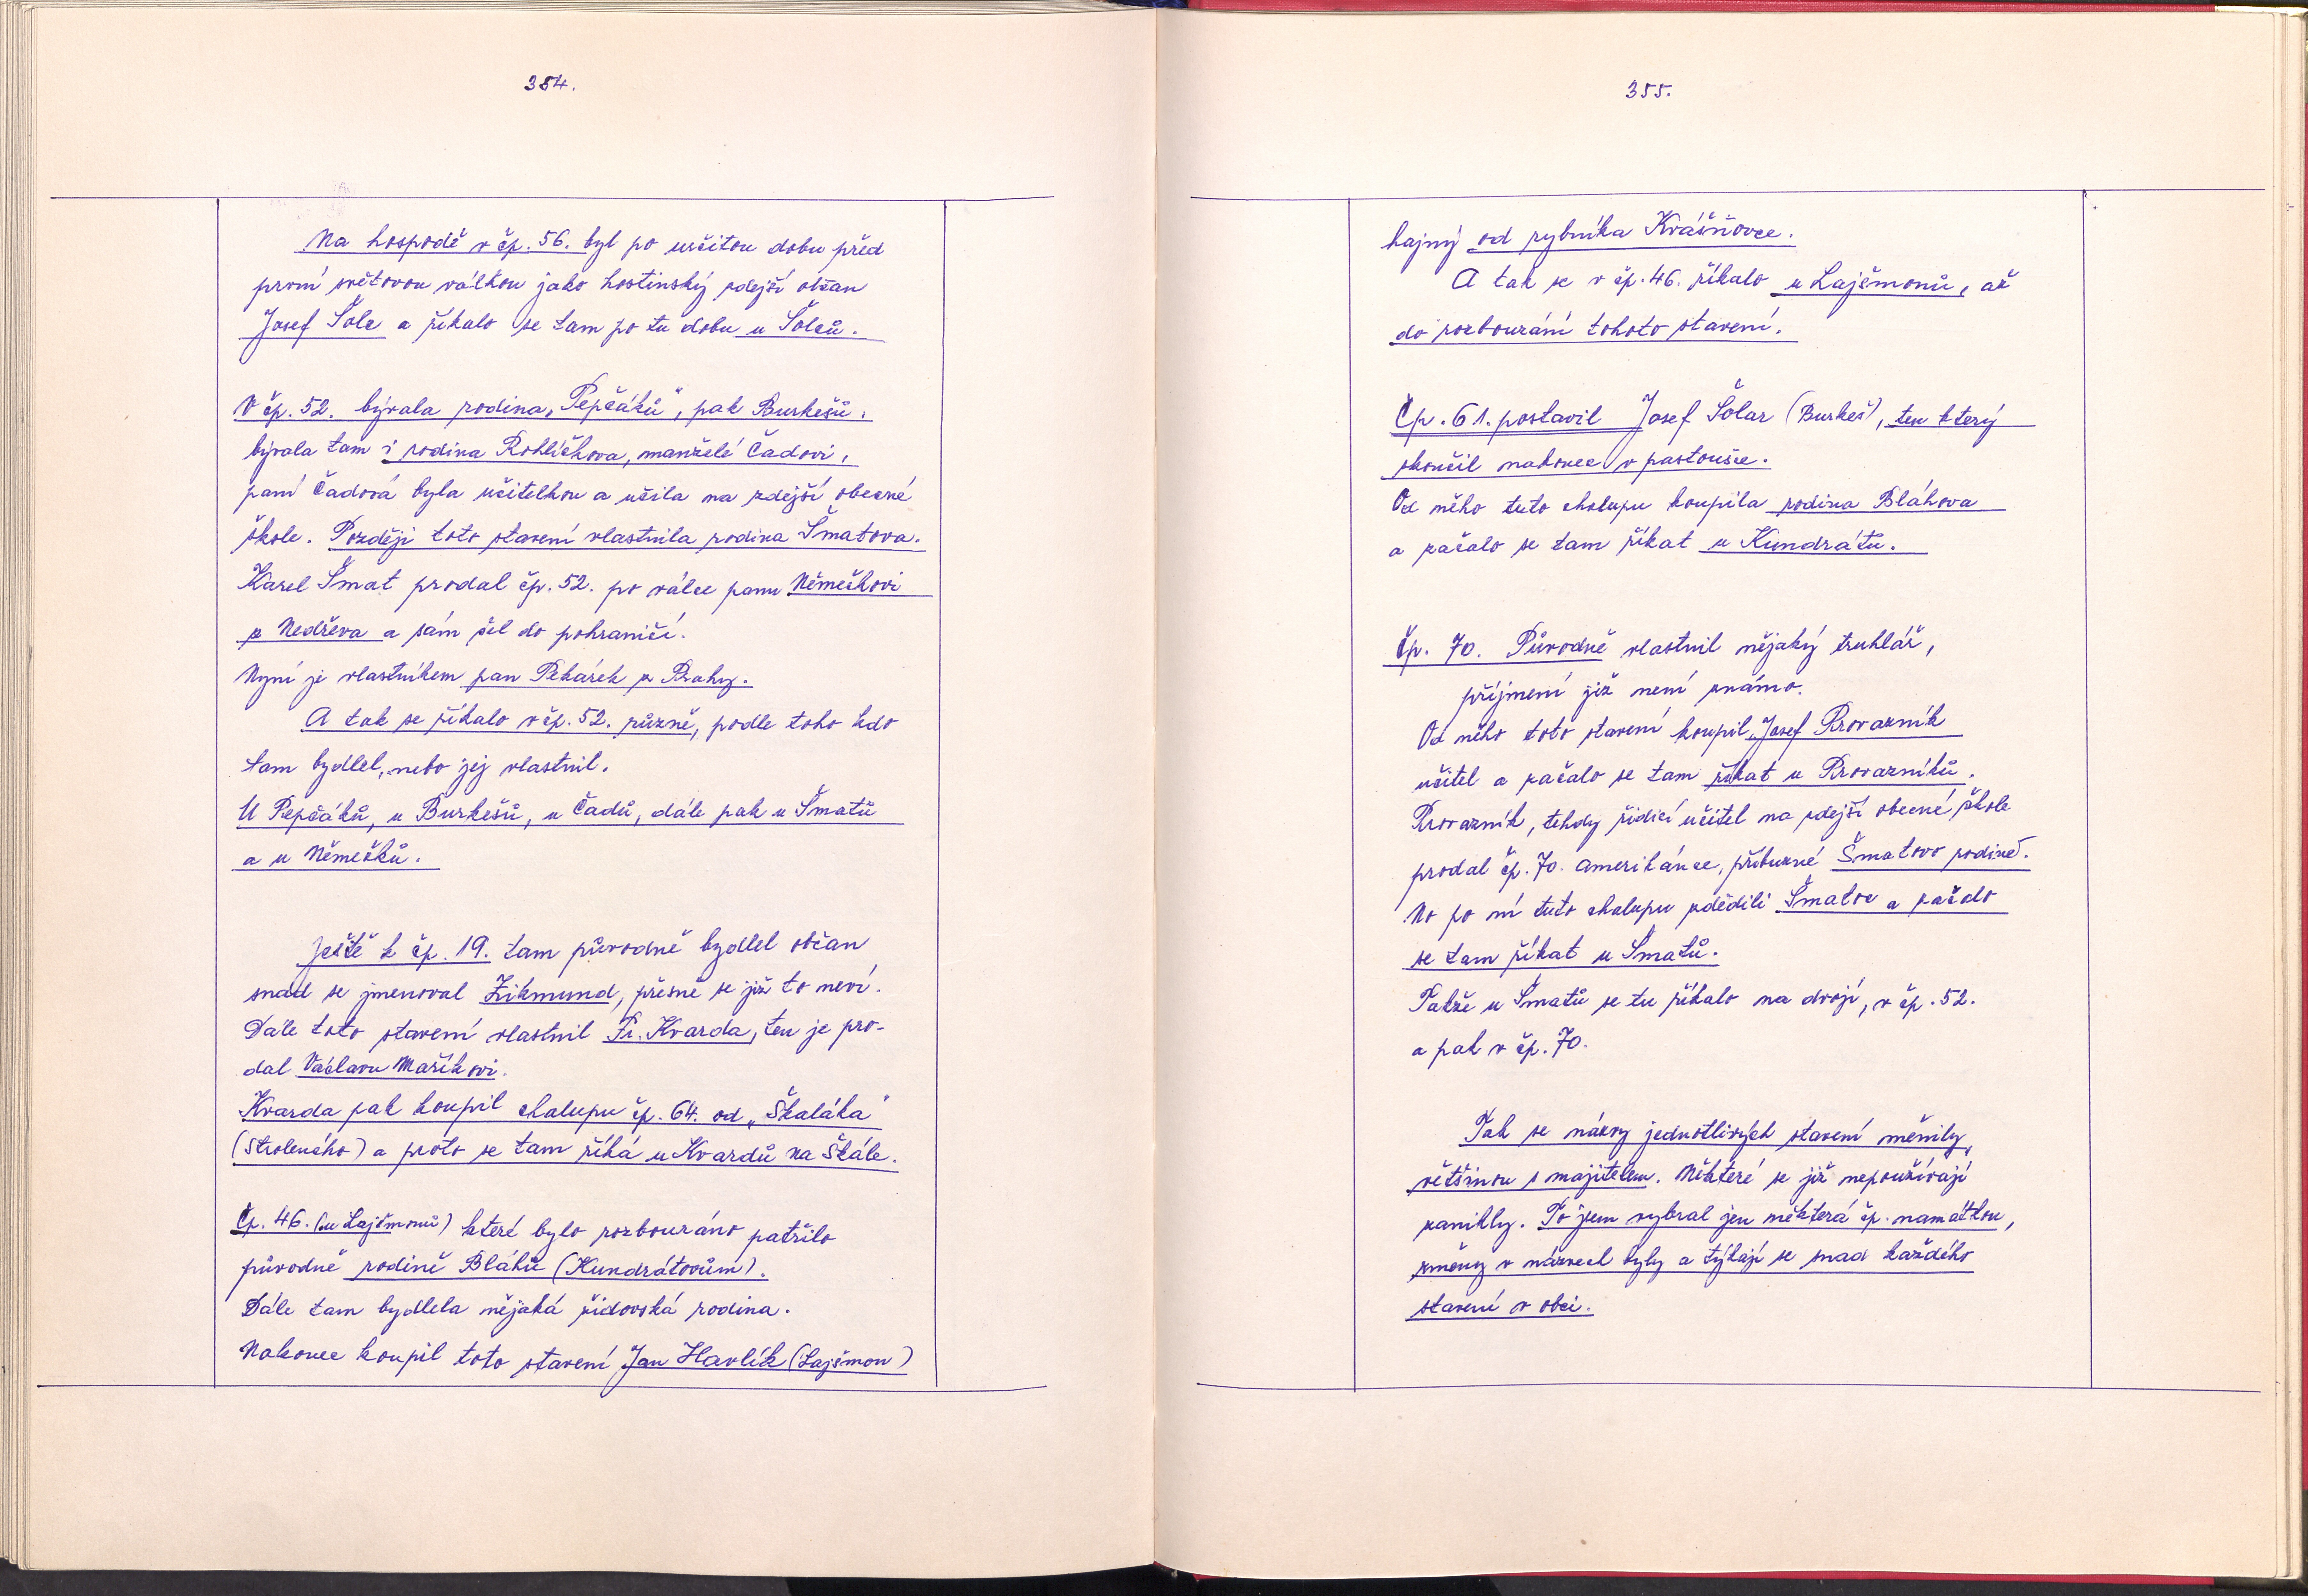 354.
Na hospodě v čp. 56. byl po určitou dobu před
první světovou válkou jako hostinský zdejší občan
Josef Šolc a říkalo se tam po tu dobu u Šolců.
V čp. 52. bývala rodina „Pepčáků", pak Burkešů.
bývala tam i rodina Rohlíčkova, manželé Čadovi,
paní Čadová byla učitelkou a učila na zdejší obecné
škole. Později toto stavení vlastnila rodina Šmatova.
Karel Šmat prodal čp. 52. po válce panu Němečkovi
z Nedřeva a sám šel do pohraničí.
Nyní je vlastníkem pan Pekárek z Prahy.
A tak se říkalo v čp. 52. různě, podle toho kdo
tam bydlel, nebo jej vlastnil.
U Pepčáků, u Burkešů, u Čadů, dále pak u Šmatů
a u Němečků.
Ještě k čp. 19. tam původně bydlel občan
snad se jmenoval Zikmund, přesně se již to neví.
Dále toto stavení vlastnil Fr. Kvarda, ten je pro-
dal Václavu Maříkovi.
Kvarda pak koupil chalupu čp. 64. od „Škaláka"
(Stroleného) a proto se tam říká u Kvardů na Škále.
Čp. 46. (u Lajšmonů) které bylo rozbouráno patřilo
původně rodině Bláhů (Kundrátovům).
Dále tam bydlela nějaká židovská rodina.
Nakonec koupil toto stavení Jan Havlík (Lajšmon)
355.
hajný od rybníka Krášňovce.
A tak se v čp. 46. říkalo u Lajšmonů, až
do rozbourání tohoto stavení.
Čp. 61. postavil Josef Šolar (Burkeš), ten který
skončil nakonec v pastoušce.
Od něho tuto chalupu koupila rodina Bláhova
a začalo se tam říkat u Kundrátů.
Čp. 70. Původně vlastnil nějaký truhlář,
příjmení již není známo.
Od něho toto stavení koupil Josef Provazník
učitel a začalo se tam říkat u Provazníků.
Provazník, tehdy řídící učitel na zdejší obecné škole
prodal čp. 70. amerikánce, příbuzné Šmatovo rodině.
No po ní tuto chalupu zdědili Šmatovi a začalo
se tam říkat u Šmatů.
Takže u Šmatů se tu říkalo na dvojí, v čp. 52.
a pak v čp. 70.
Tak se názvy jednotlivých stavení měnily,
většinou s majitelem. Některé se již nepoužívají
zanikly. To jsem vybral jen některá čp. namátkou,
změny v názvech byly a týkají se snad každého
stavení v obci.